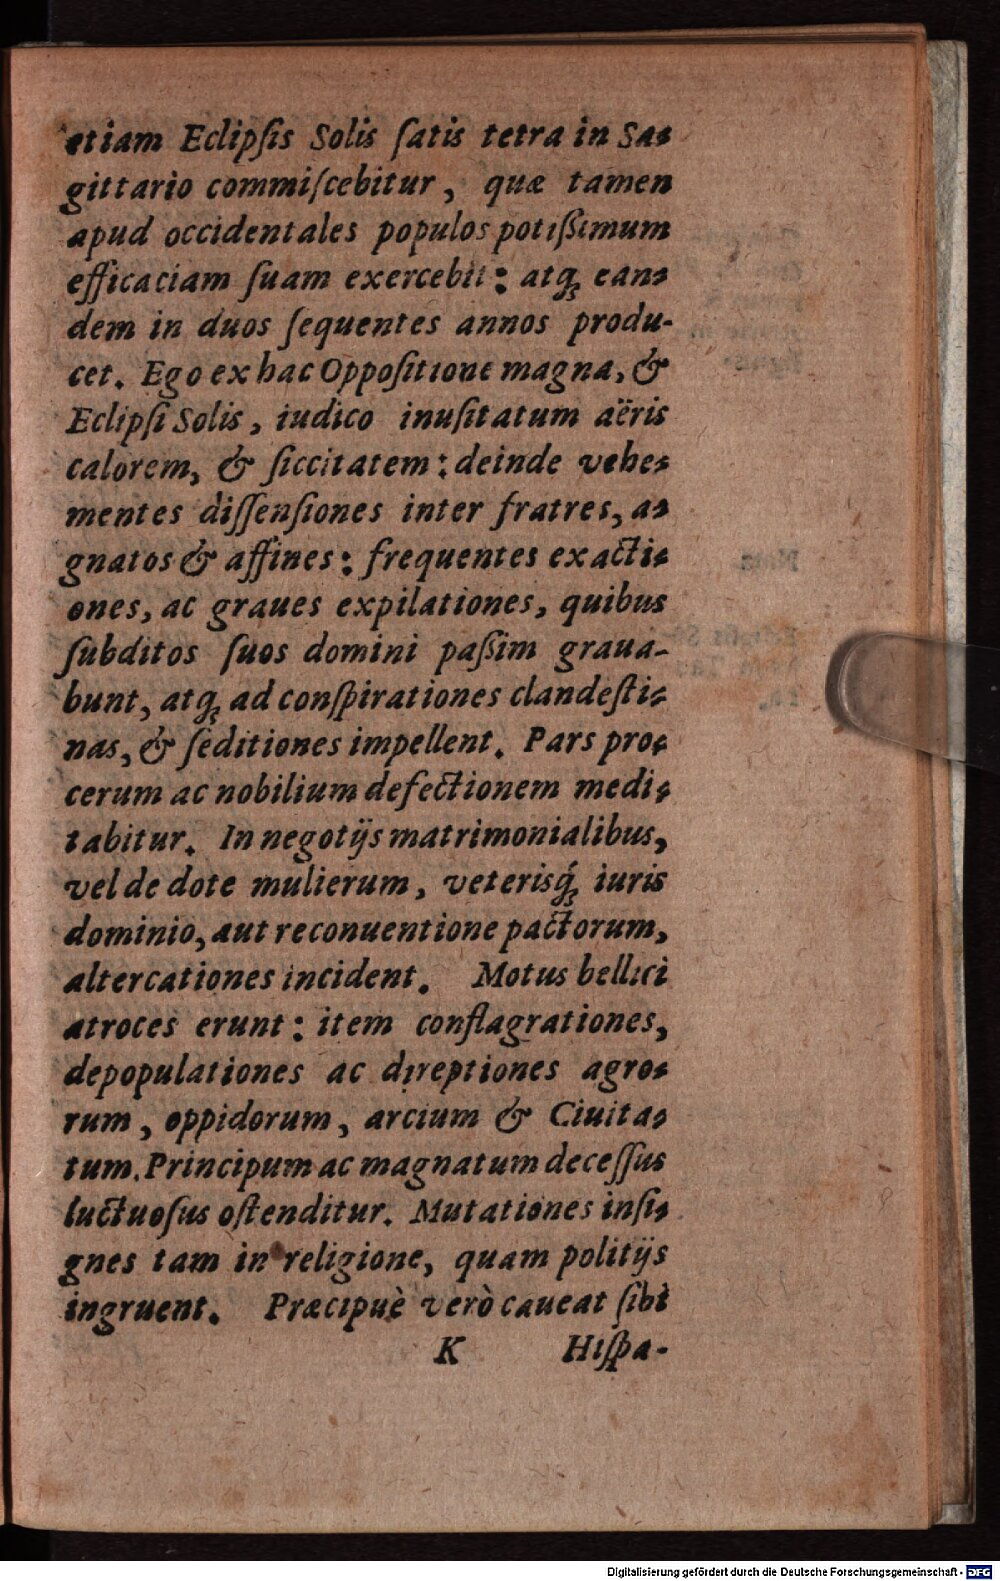 etiam Eclipſis Solis ſatis tetra in Sa-
gittario commiſcebitur, quæ tamen
apud occidentales populos potißimum
efficaciam ſuam exercebit: atq́ʒ ean-
dem in duos ſequentes annos produ-
cet. Ego ex hac Oppoſitione magna, &
Eclipſi Solis, iudico inuſitatum aëris
calorem, & ſiccitatem: deinde vehe-
mentes diſſenſiones inter fratres, a-
gnatos & affines: frequentes exacti-
ones, ac graues expilationes, quibus
ſubditos ſuos domini paßim graua-
bunt, atqʒ ad conſpirationes clandeſti-
nas, & ſeditiones impellent. Pars pro-
cerum ac nobilium defectionem medi-
tabitur. In negotijs matrimonialibus,
vel de dote mulierum, veterisq́ʒ iuris
dominio, aut reconuentione pactorum,
altercationes incident. Motus bellici
atroces erunt: item conflagrationes,
depopulationes ac direptiones agro-
rum, oppidorum, arcium & Ciuita-
tum. Principum ac magnatum deceſſus
luctuoſus oſtenditur. Mutationes inſi-
gnes tam in religione, quam politijs
ingruent. Præcipuè verò caueat ſibi
K Hiſpa-
Digitalisierung gefördert durch die Deutsche Forschungsgemeinschaft - DFG